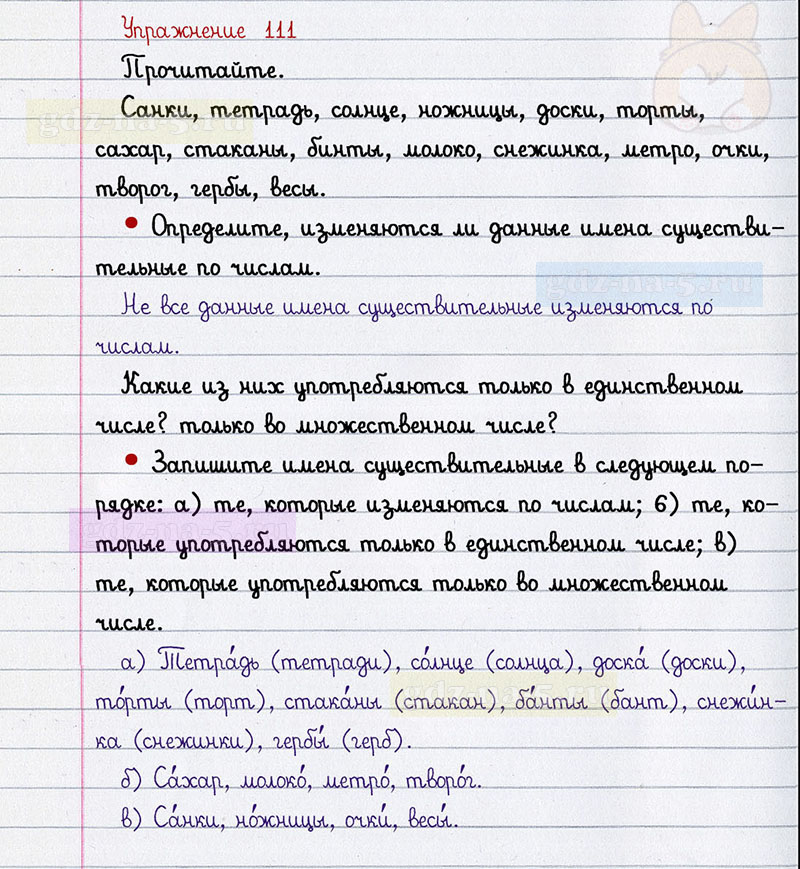 Упражнение 111
Прочитайте.
Санки, тетрадь, солнце, ножницы, доски, торты,
сахар, стаканы, бинты, молоко, снежинка, метро, очки,
творог, гербы, весы.
• Определите, изменяются ли данные имена существи-
тельные по числам.
Не все данные имена существительные изменяются по
числам.
Какие из них употребляются только в единственном
числе? только во множественном числе?
• Запишите имена существительные в следующем по-
рядке: а) те, которые изменяются по числам; б) те, ко-
торые употребляются только в единственном числе; в)
те, которые употребляются только во множественном
числе.
а) Тетра́дь (тетради), со́лнце (солнца), доска́ (доски),
то́рты (торт), стака́ны (стакан), ба́нты (бант), снежи́н-
ка (снежинки), гербы́ (герб).
б) Са́хар, молоко́, метро́, творо́г.
в) Са́нки, но́жницы, очки́, весы́.
gdz-na-5.ru
gdz-na-5.ru
gdz-na-5.ru
gdz-na-5.ru